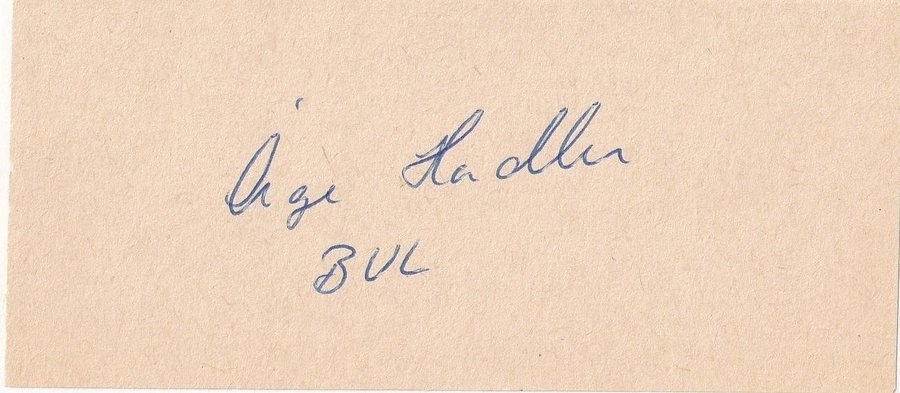 Åge Hadler
BUL